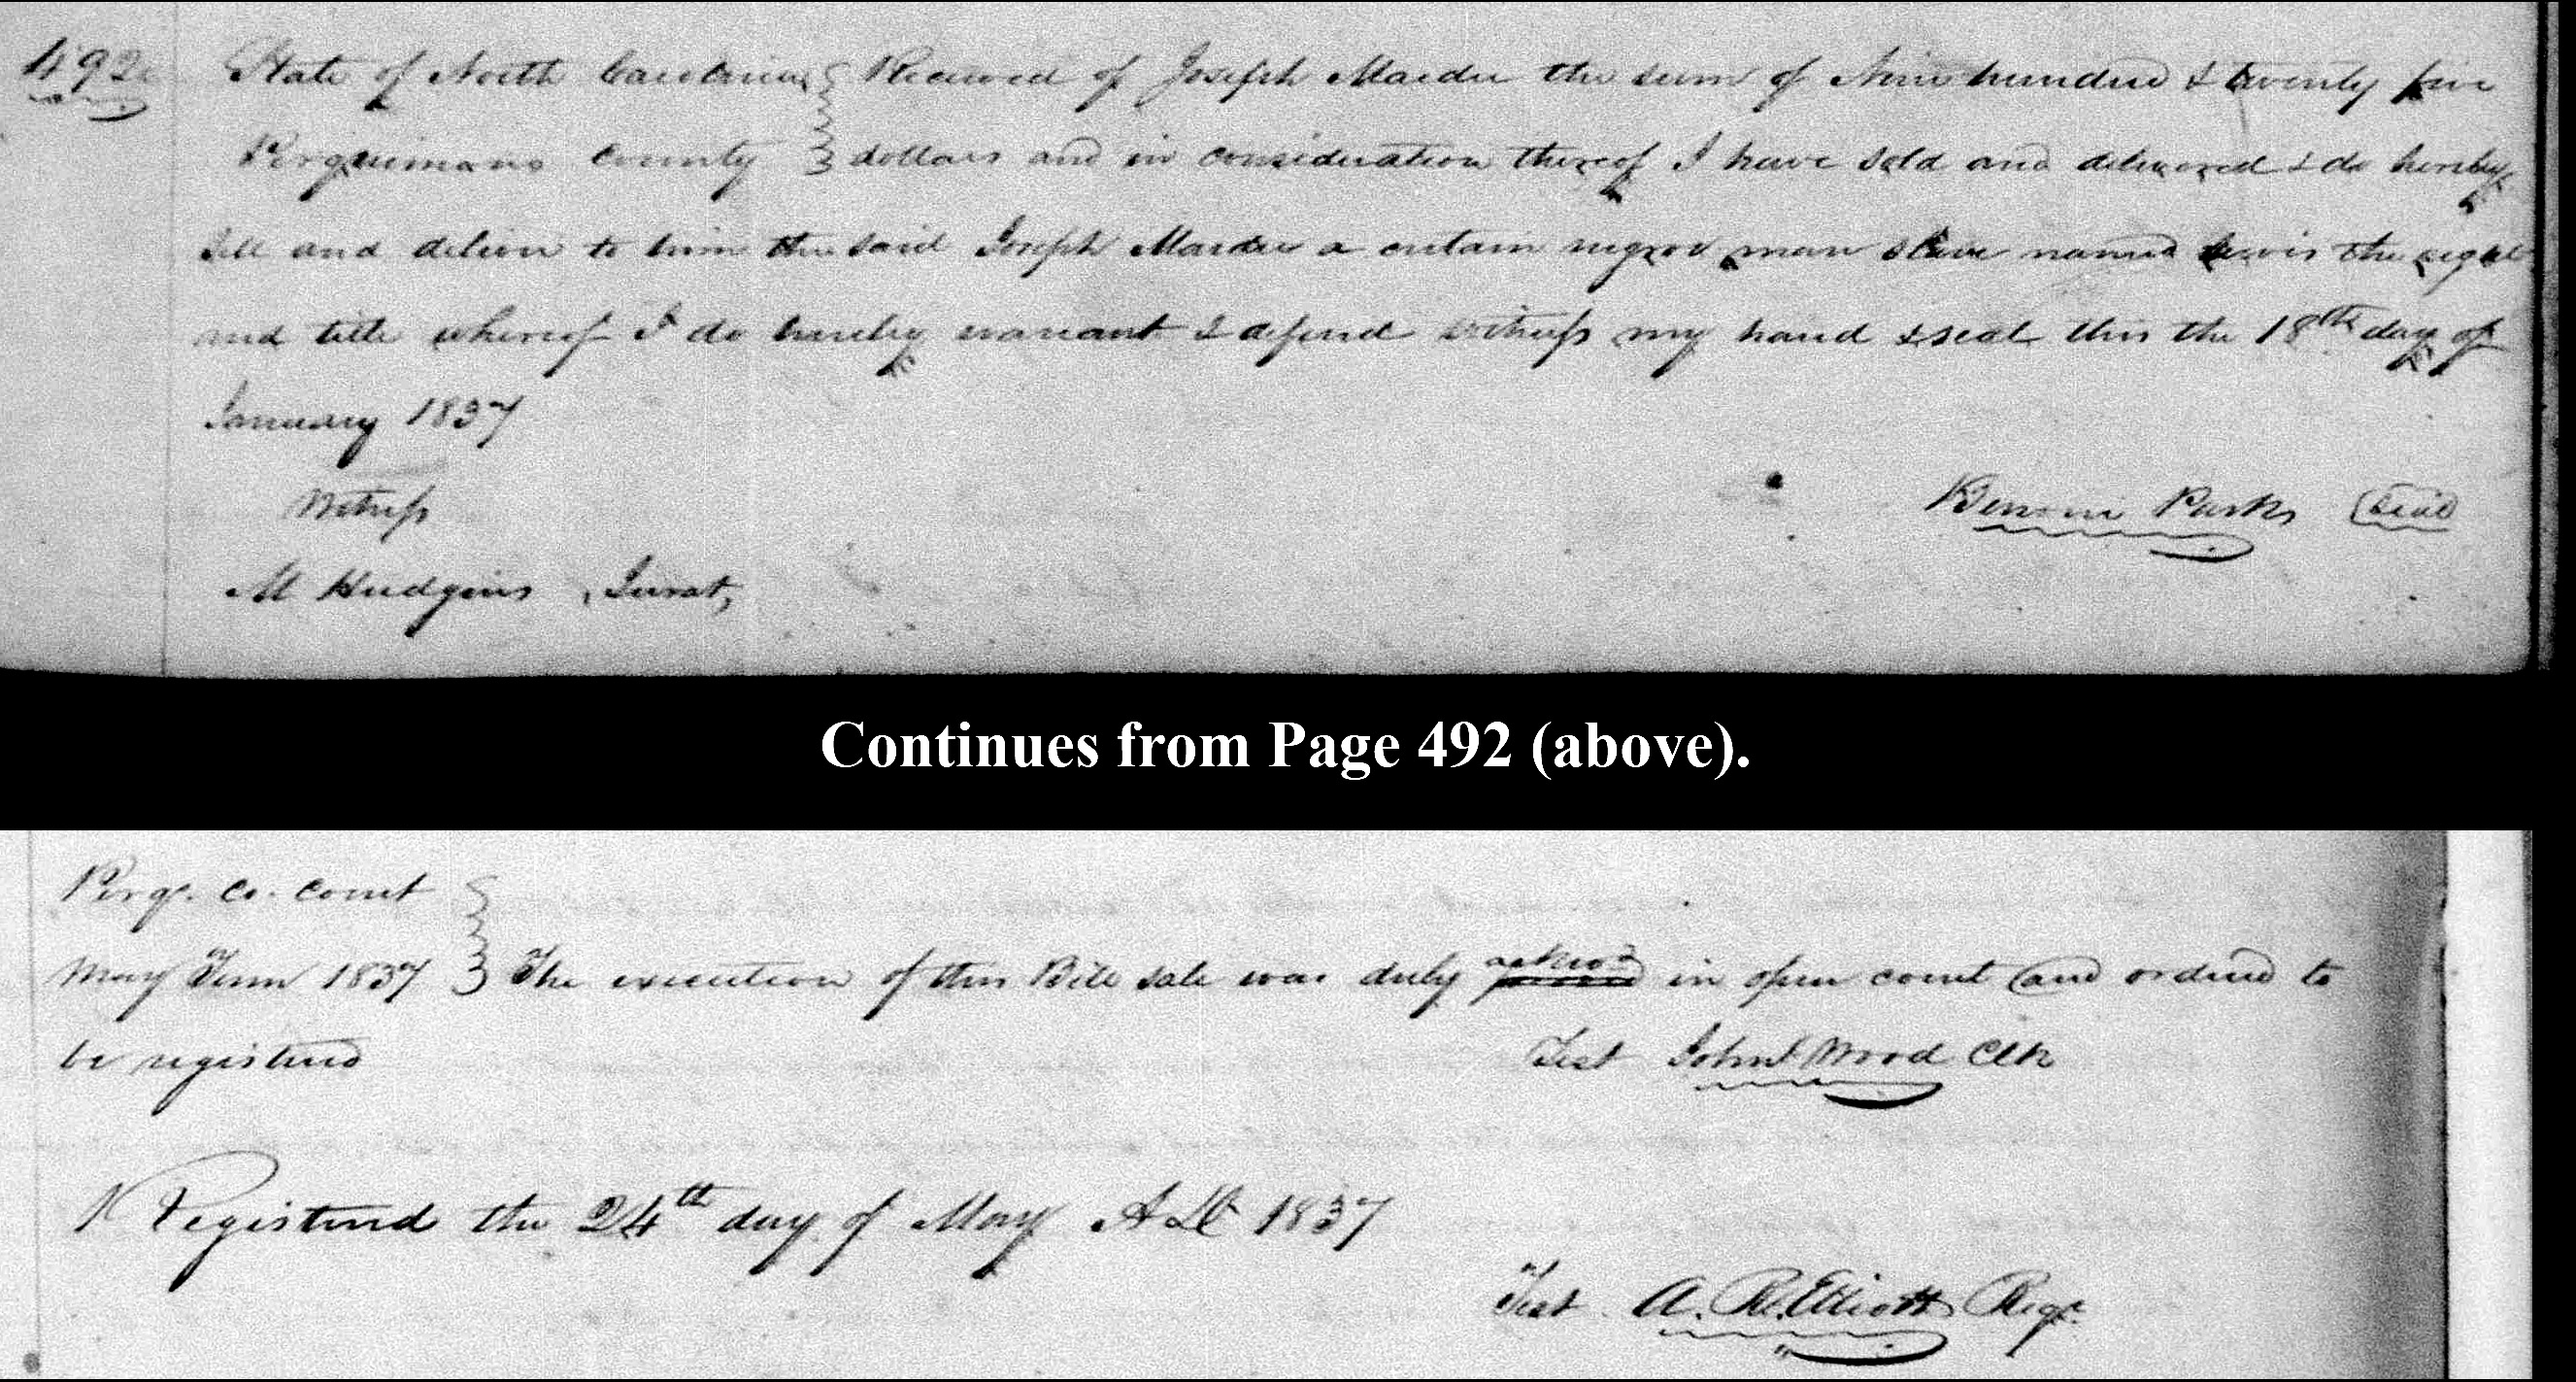 492
State of North Carolina } Received of Joseph Mardre the sum of Nine hundred & twenty five
Perquimans County } dollars and in consideration thereof I have sold and delivered & do hereby
sell and deliver to him the said Joseph Mardre a certain negrov man slave named Lewis the right
and title whereof I do hereby warrant & defend witness my hand & seal this the 18th day of
January 1837
Witness
Bennoni Parks Seal
M Hudgins Jurat,
Continues from Page 492 (above).
Perqs. Co. Court
May Term 1837 } The execution of this Bill sale was duly ackd in open court and ordered to
be registered
Test John Wood Clk
Registered the 24th day of May AD 1837
Test A. R. Elliott Regr.